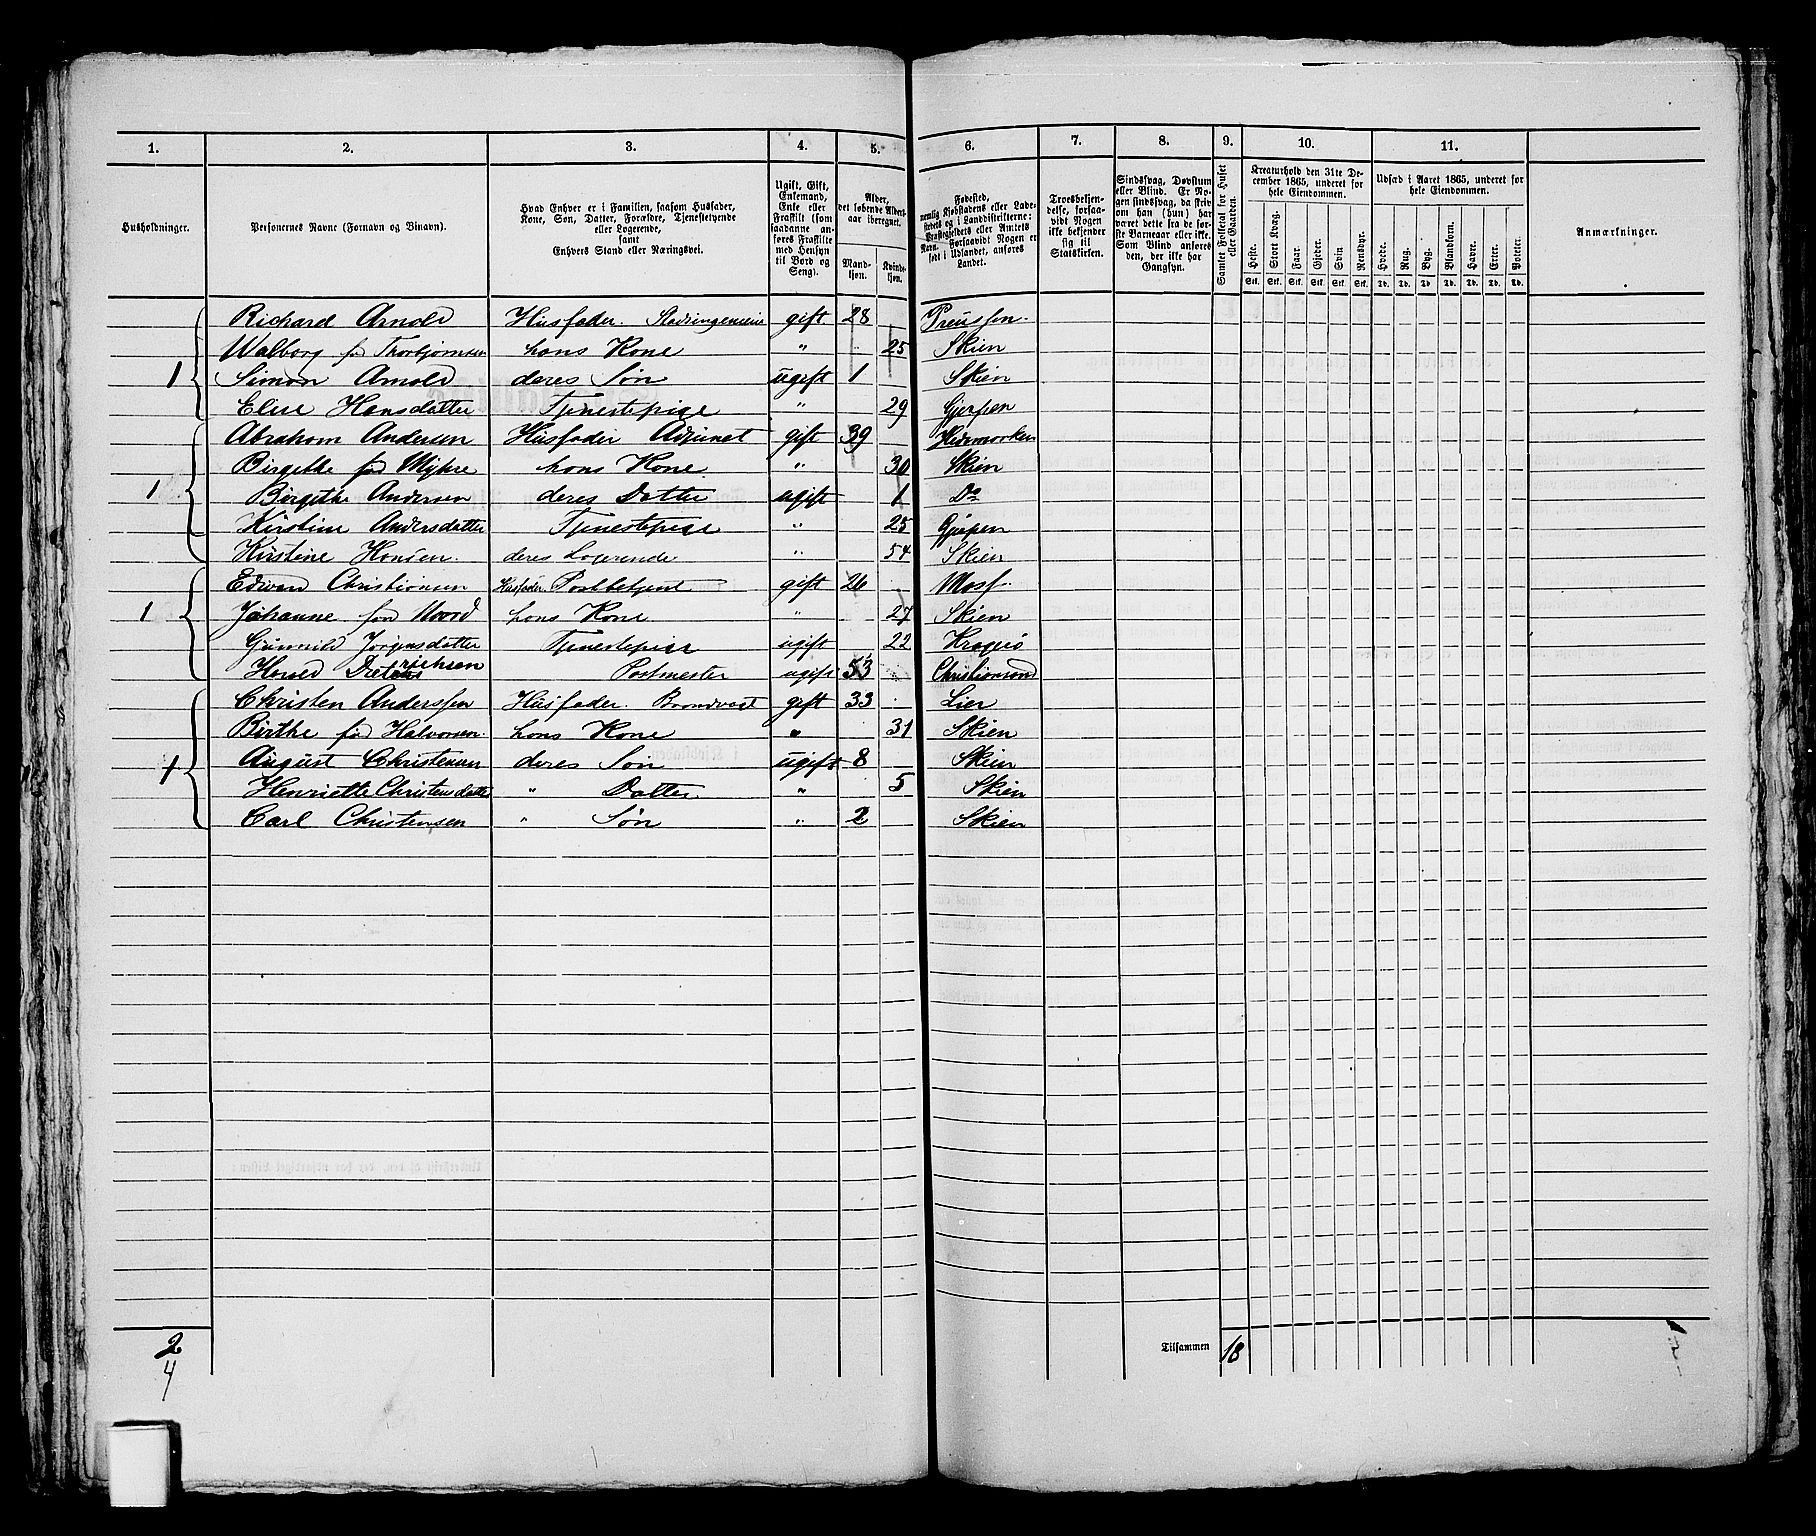 1. 2. 3. 4. 5. 6. 7. 8. 9. 10. 11.
Husholdninger.
Personernes Navne (Fornavn og Binavn).
Hvad Enhver er i Familien, saasom Husfader,
Kone, Søn, Datter, Forældre, Tjenestetyende
eller Logerende,
samt
Enhvers Stand eller Næringsvei.
Ugift, Gift,
Enkemand,
Enke eller
Fraskilt (som
saadanne an-
føres Fraskilte
med Hensyn
til Bord og
Seng).
Alder,
det løbende Alders-
aar iberegnet.
Mand-
kjøn.
Kvinde-
kjøn.
Fødested,
nemlig Kjøbstadens eller Lade-
stedets og i Landdistrikterne:
Præstegjeldets eller Amtets
Navn. Forsaavidt Nogen er
født i Udlandet, anføres
Landet.
Troesbekjen-
delse, forsaa-
vidt Nogen
ikke bekjender
sig til
Statskirken.
Sindssvag, Døvstum
eller Blind. Er No-
gen sindssvag, da skriv
om han (hun) har
været dette fra de før-
ste Barneaar eller ikke.
Som Blind anføres
den, der ikke har
Gangsyn.
Samlet Folketal for Huset
eller Gaarden.
Kreaturhold den 31te De-
cember 1865, underet for
hele Eiendommen.
Heste. Stort Kvæg. Faar. Gjeder. Svin Rensdyr.
Stk. Stk. Stk. Stk. Stk. Stk.
Udsæd i Aaret 1865, underet for
hele Eiendommen.
Hvede. Rug. Byg. Blandkorn. Havre. Erter. Poteter.
Td. Td. Td. Td. Td. Td. Td.
Anmærkninger.
Richard Arnold Husfader. Stadsingeniør gift 28 Preussen.
Walborg fød Thorbjørnsen hans Kone " 25 Skien
1 Simon Arnold deres Søn ugift 1 Skien
Elise Hansdatter Tjenestepige " 29 Gjerpen
Abraham Andersen Husfader Adjunct gift 39 Hedemarken
Birgethe fød Myhre hans Kone " 30 Skien
1 Birgithe Andersen deres Datter ugift 1 Do
Kirstine Andersdatter Tjenestepige " 25 Gjerpen
Kirstine Hansen. deres Logerende " 54 Skien
Edvard Christiansen Husfader. Postbetjent gift 26 Moss.
1 Johanne fød Moord hans Kone " 27 Skien
Gunnild Jørgensdatter Tjenestepige ugift 22 Kragerø
Harald Dieterichsen Postmester ugift 53 Christiansand
Christen Anderssen Husfader Brandvagt gift 33 Lier
Birthe fød Halvorsen. hans Kone " 31 Skien
1 August Christensen deres Søn ugift 8 Skien
Henriette Christensdatter " Datter. " 5 Skien
Carl Christensen " Søn " 2 Skien
2
4
Tilsammen 18